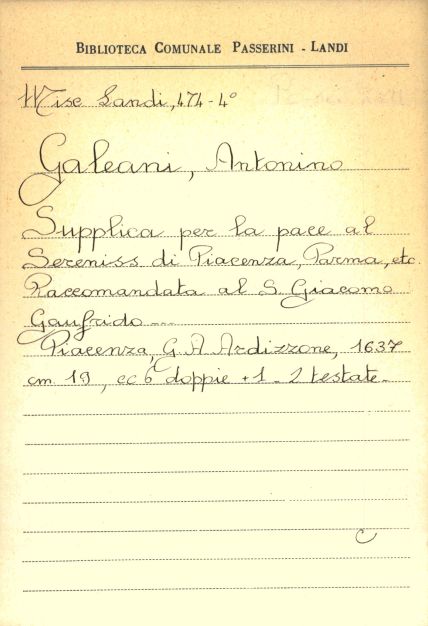 BIBLIOTECA COMUNALE PASSERINI - LANDI
Misc Landi, 474-4°
Galeani, Antonino
Supplica per la pace al
Sereniss di Piacenza, Parma, etc.
Raccomandata al S. Giacomo
Gaufrido ...
Piacenza, G. A. Ardizzone, 1637
cm. 19, cc 6 doppie + 1 - 2 testate -
C